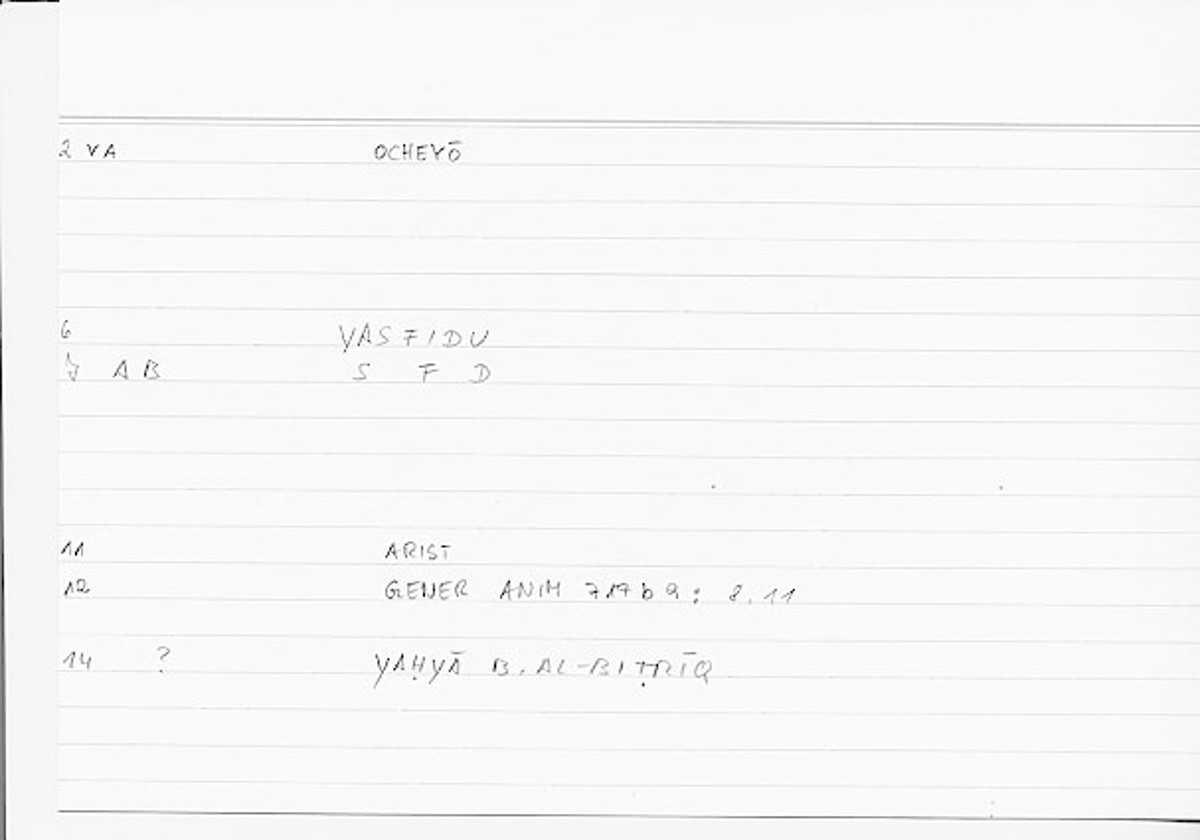 2 VA OCHEYŌ
6 YASFIDU
AB S F D
11 ARIST
12 GENER ANIM 717 b 9 : 8.11
14 ? YAḤYĀ B. AL-BIṬRĪQ